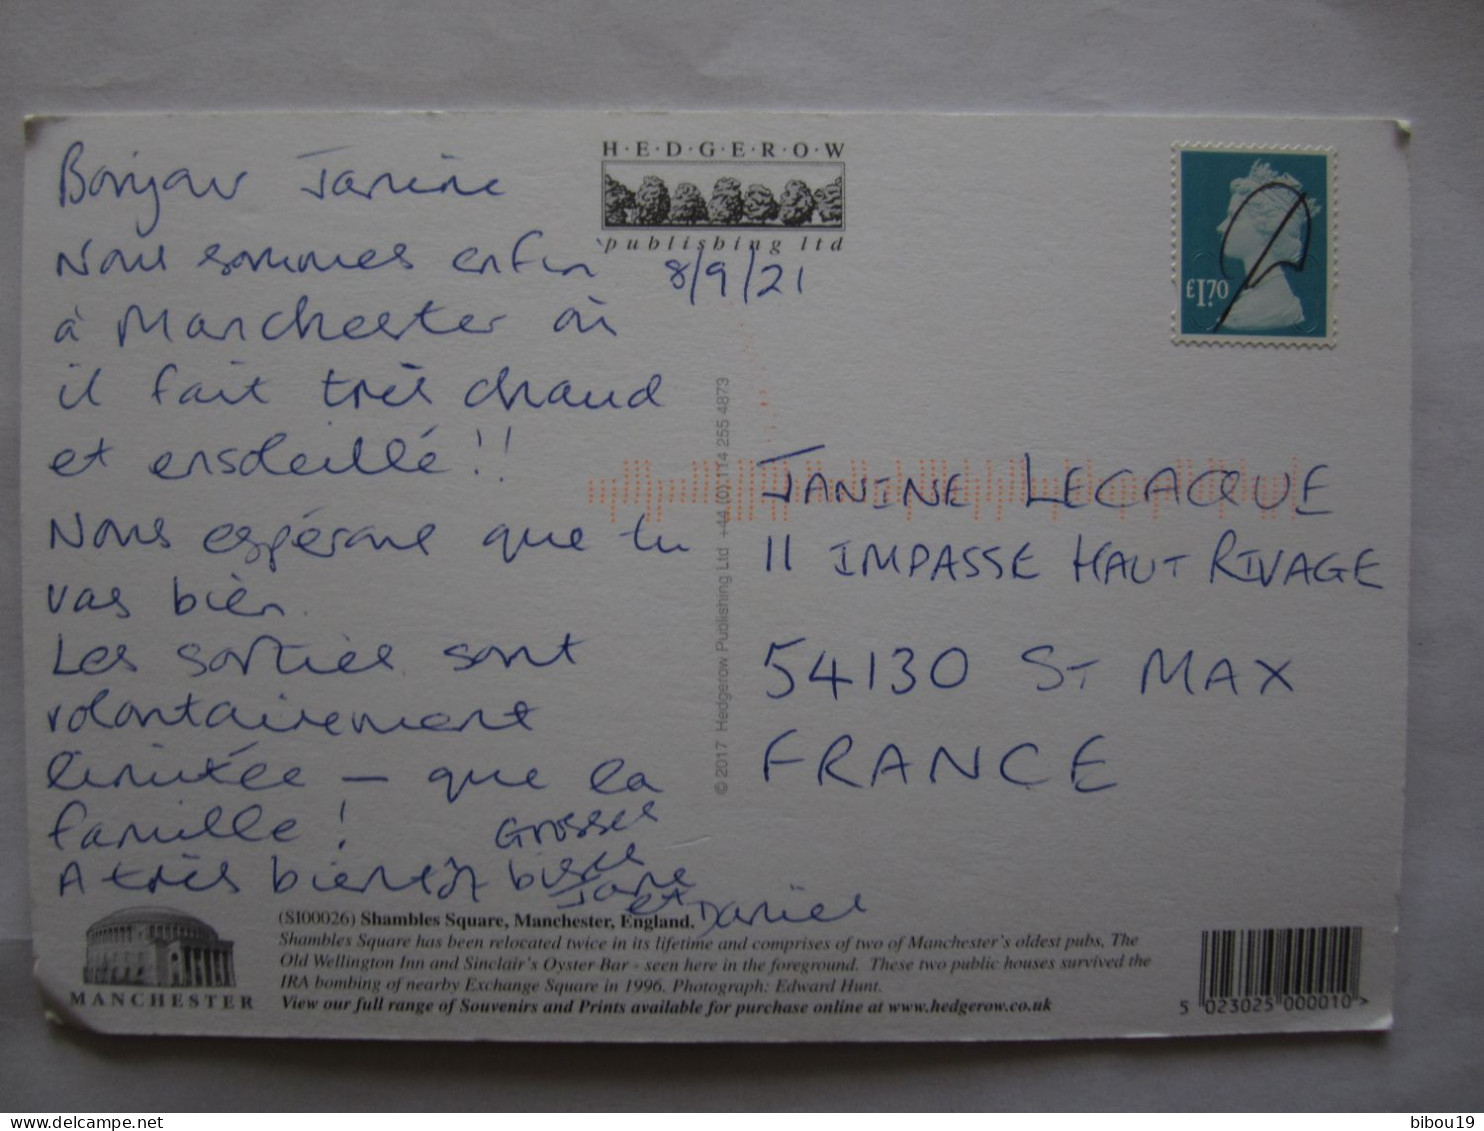 Bonjour Janine
Nous sommes enfin
à Manchester où
il fait très chaud
et ensoleillé!!
Nous espérons que tu
vas bien.
Les sorties sont
volontairement
limitée – que la
famille!
A très bientôt
Grosses
bises
Jane
et Daniel
H·E·D·G·E·R·O·W
publishing ltd
8/9/21
£1.70
© 2017 Hedgerow Publishing Ltd +44 (0) 114 255 4873
JANINE LECACQUE
11 IMPASSE HAUT RIVAGE
54130 ST MAX
FRANCE
MANCHESTER
(SI00026) Shambles Square, Manchester, England.
Shambles Square has been relocated twice in its lifetime and comprises of two of Manchester's oldest pubs, The
Old Wellington Inn and Sinclair's Oyster Bar - seen here in the foreground. These two public houses survived the
IRA bombing of nearby Exchange Square in 1996. Photograph: Edward Hunt.
View our full range of Souvenirs and Prints available for purchase online at www.hedgerow.co.uk
5 023025 000010 >
bibou19